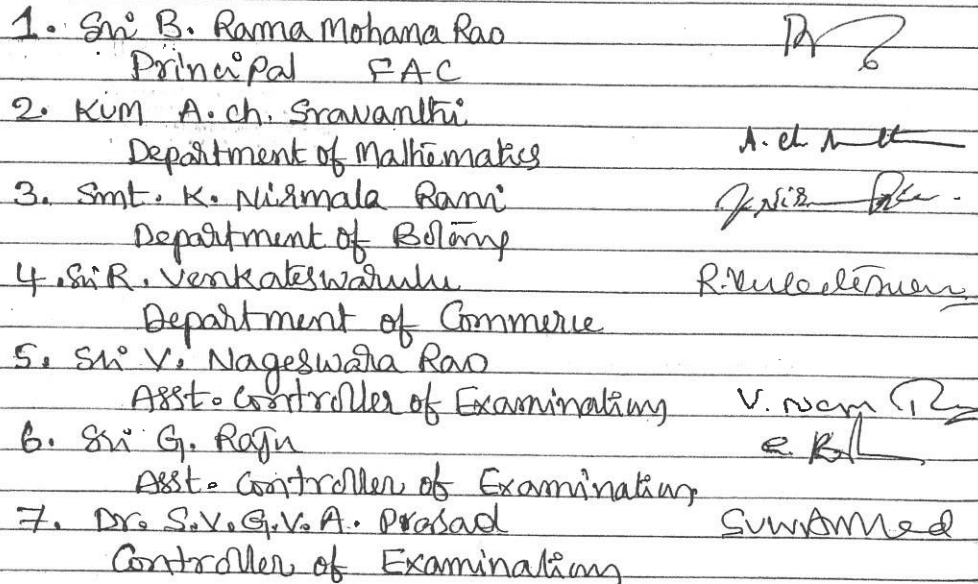 1. Sri B. Rama Mohana Rao
Principal FAC
2. Kum A. ch. Sravanthi
Department of Mathematics A. ch
3. Smt. K. Nirmala Rani
Department of Botany
4. Sri R. Venkateswarulu R.
Department of Commerce
5. Sri V. Nageswara Rao
Asst. Controller of Examinations V.
6. Sri G. Raju
Asst. Controller of Examinations
7. Dr. S.V.G.V.A. Prasad
Controller of Examinations